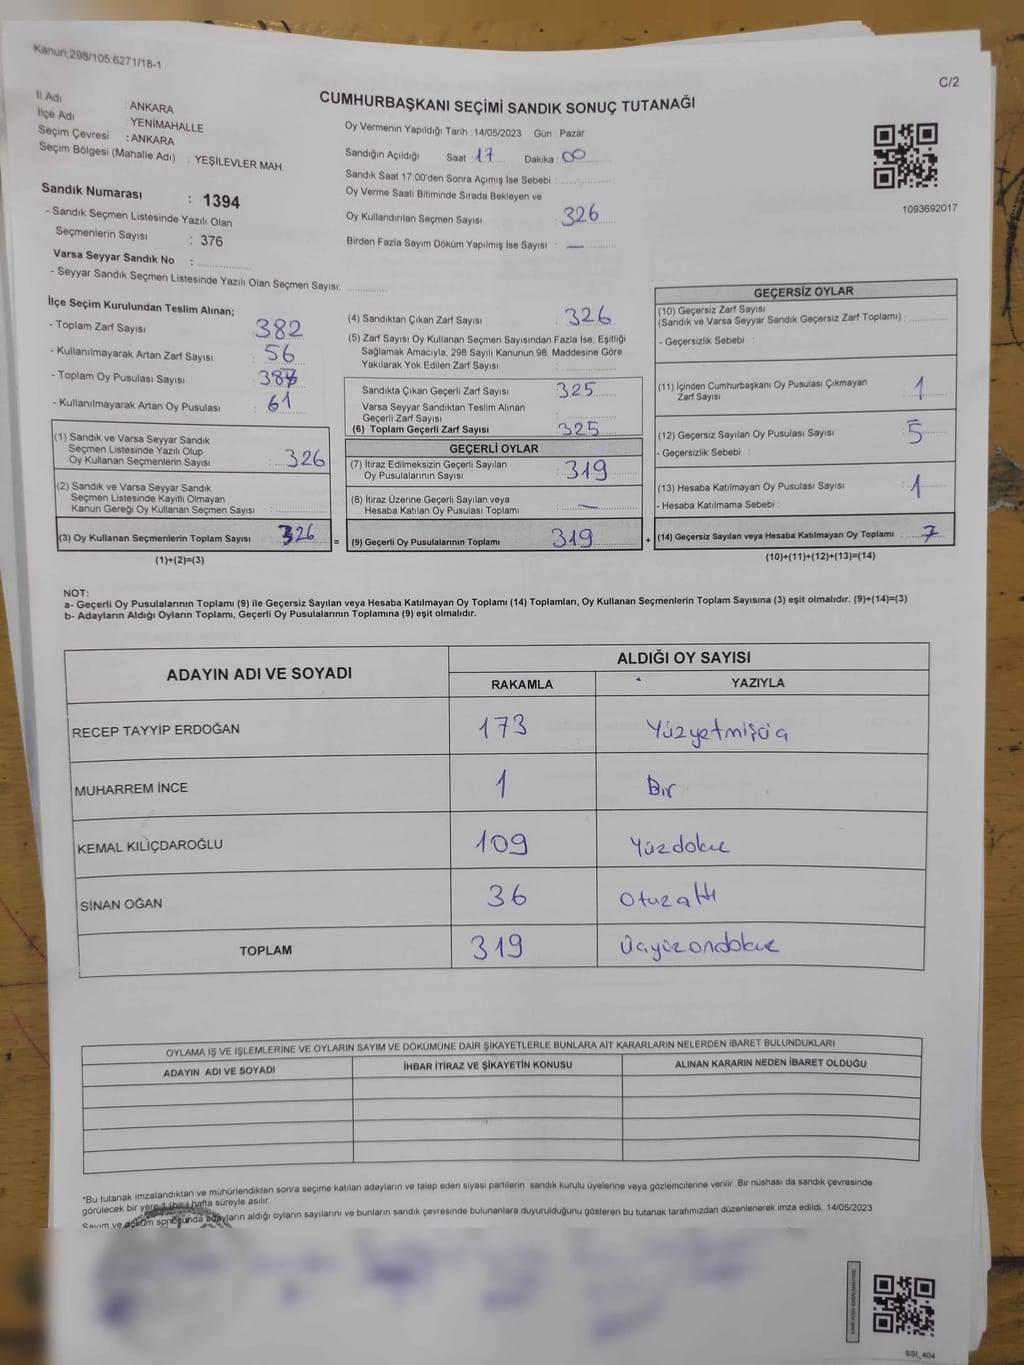 Kanun:298/105:6271/18-1
C/2
CUMHURBAŞKANI SEÇİMİ SANDIK SONUÇ TUTANAĞI
İl Adı : ANKARA
İlçe Adı : YENİMAHALLE
Seçim Çevresi : ANKARA
Seçim Bölgesi (Mahalle Adı) : YEŞİLEVLER MAH.
Oy Vermenin Yapıldığı Tarih : 14/05/2023 Gün : Pazar
Sandığın Açıldığı Saat : 17 Dakika : 00
Sandık Saat 17:00'den Sonra Açımış İse Sebebi :
Oy Verme Saati Bitiminde Sırada Bekleyen ve
Oy Kullandırılan Seçmen Sayısı : 326
Birden Fazla Sayım Döküm Yapılmış İse Sayısı : —
1093692017
Sandık Numarası : 1394
- Sandık Seçmen Listesinde Yazılı Olan
Seçmenlerin Sayısı : 376
Varsa Seyyar Sandık No :
- Seyyar Sandık Seçmen Listesinde Yazılı Olan Seçmen Sayısı:
İlçe Seçim Kurulundan Teslim Alınan;
- Toplam Zarf Sayısı : 382
- Kullanılmayarak Artan Zarf Sayısı : 56
- Toplam Oy Pusulası Sayısı : 387
- Kullanılmayarak Artan Oy Pusulası : 61
(1) Sandık ve Varsa Seyyar Sandık
Seçmen Listesinde Yazılı Olup
Oy Kullanan Seçmenlerin Sayısı : 326
(2) Sandık ve Varsa Seyyar Sandık
Seçmen Listesinde Kayıtlı Olmayan
Kanun Gereği Oy Kullanan Seçmen Sayısı :
(3) Oy Kullanan Seçmenlerin Toplam Sayısı : 326 =
(1)+(2)=(3)
(4) Sandıktan Çıkan Zarf Sayısı : 326
(5) Zarf Sayısı Oy Kullanan Seçmen Sayısından Fazla İse, Eşitliği
Sağlamak Amacıyla; 298 Sayılı Kanunun 98. Maddesine Göre
Yakılarak Yok Edilen Zarf Sayısı :
Sandıkta Çıkan Geçerli Zarf Sayısı : 325
Varsa Seyyar Sandıktan Teslim Alınan
Geçerli Zarf Sayısı :
(6) Toplam Geçerli Zarf Sayısı : 325
GEÇERLİ OYLAR
(7) İtiraz Edilmeksizin Geçerli Sayılan
Oy Pusulalarının Sayısı : 319
(8) İtiraz Üzerine Geçerli Sayılan veya
Hesaba Katılan Oy Pusulası Toplamı : —
(9) Geçerli Oy Pusulalarının Toplamı 319 +
GEÇERSİZ OYLAR
(10) Geçersiz Zarf Sayısı
(Sandık ve Varsa Seyyar Sandık Geçersiz Zarf Toplamı) :
- Geçersizlik Sebebi :
(11) İçinden Cumhurbaşkanı Oy Pusulası Çıkmayan
Zarf Sayısı : 1
(12) Geçersiz Sayılan Oy Pusulası Sayısı : 5
- Geçersizlik Sebebi :
(13) Hesaba Katılmayan Oy Pusulası Sayısı : 1
- Hesaba Katılmama Sebebi :
(14) Geçersiz Sayılan veya Hesaba Katılmayan Oy Toplamı : 7
(10)+(11)+(12)+(13)=(14)
NOT:
a- Geçerli Oy Pusulalarının Toplamı (9) ile Geçersiz Sayılan veya Hesaba Katılmayan Oy Toplamı (14) Toplamları, Oy Kullanan Seçmenlerin Toplam Sayısına (3) eşit olmalıdır. (9)+(14)=(3)
b- Adayların Aldığı Oyların Toplamı, Geçerli Oy Pusulalarının Toplamına (9) eşit olmalıdır.
ADAYIN ADI VE SOYADI
ALDIĞI OY SAYISI
RAKAMLA YAZIYLA
RECEP TAYYİP ERDOĞAN 173 Yüzyetmişüç
MUHARREM İNCE 1 Bir
KEMAL KILIÇDAROĞLU 109 Yüzdokuz
SİNAN OĞAN 36 Otuzaltı
TOPLAM 319 Üçyüzondokuz
OYLAMA İŞ VE İŞLEMLERİNE VE OYLARIN SAYIM VE DÖKÜMÜNE DAİR ŞİKAYETLERLE BUNLARA AİT KARARLARIN NELERDEN İBARET BULUNDUKLARI
ADAYIN ADI VE SOYADI İHBAR İTİRAZ VE ŞİKAYETİN KONUSU ALINAN KARARIN NEDEN İBARET OLDUĞU
*Bu tutanak imzalandıktan ve mühürlendikten sonra seçime katılan adayların ve talep eden siyasi partilerin sandık kurulu üyelerine veya gözlemcilerine verilir. Bir nüshası da sandık çevresinde
görülecek bir yere 1 (bir) hafta süreyle asılır.
Sayım ve döküm sonucunda adayların aldığı oyların sayılarını ve bunların sandık çevresinde bulunanlara duyurulduğunu gösteren bu tutanak tarafımızdan düzenlenerek imza edildi. 14/05/2023
SSI_404